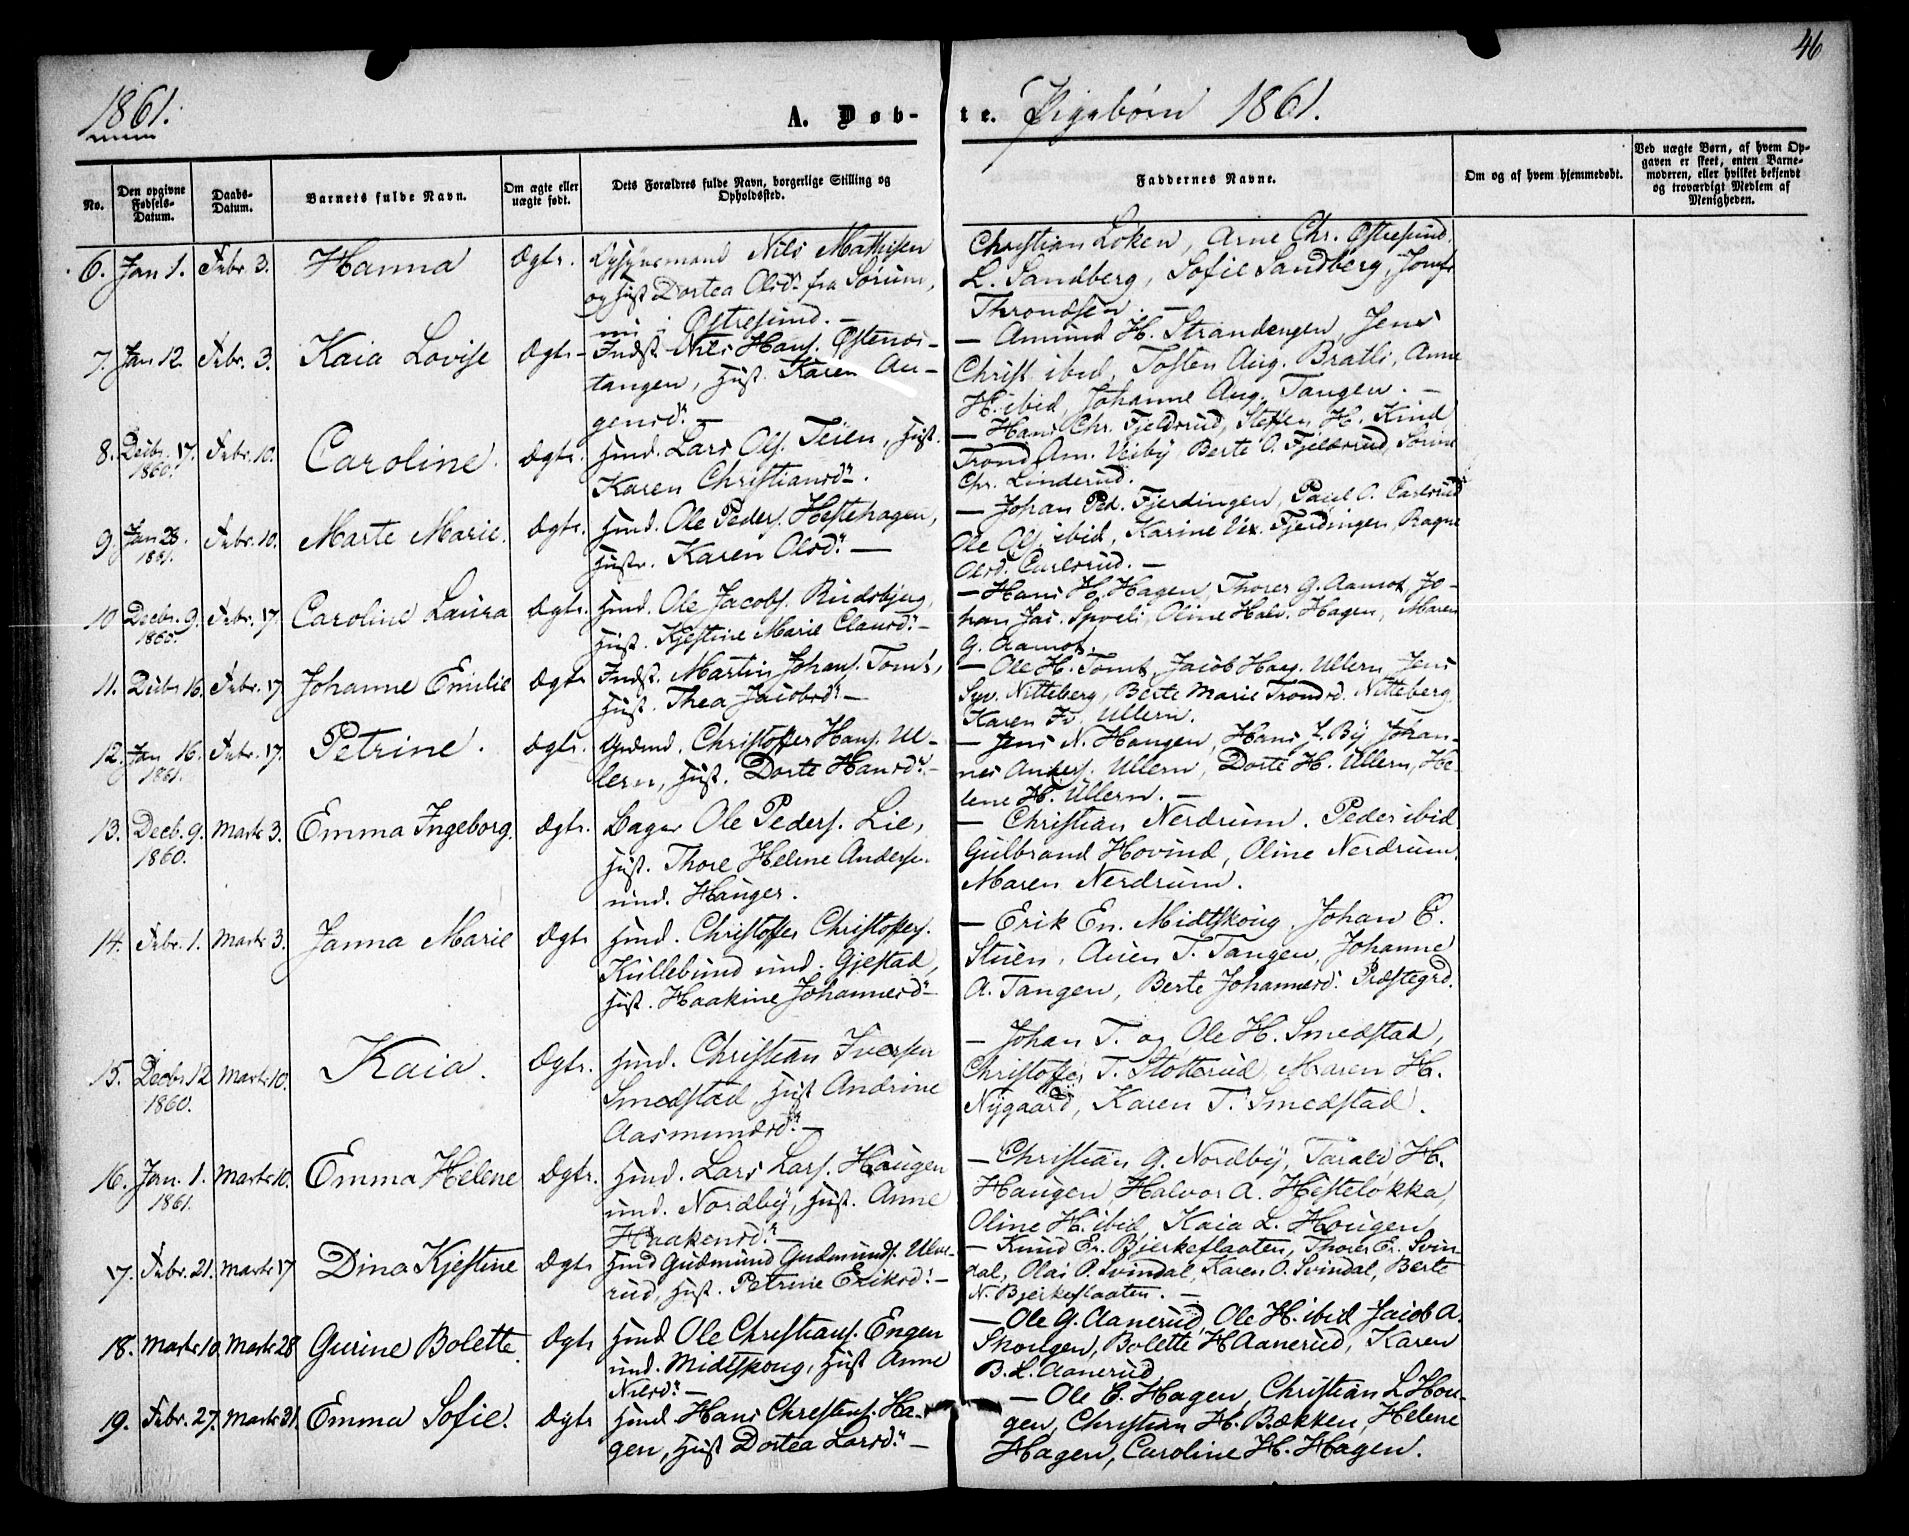 46
1861.
A. Døb-
te. Pigebørn 1861.
No.
Den opgivne Fødsels-Datum.
Daabs-Datum.
Barnets fulde Navn.
Om ægte eller uægte født.
Dets Forældres fulde Navn, borgerlige Stilling og Opholdssted.
Faddernes Navne.
Om og af hvem hjemmedøbt.
Ved uægte Børn, af hvem Opgaven er skeet, enten Barnemoderen, eller hvilket bekjendt og troværdigt Medlem af Menigheden.
6. Jan 1. Febr. 3. Hanna Ægte. Nils Mathisen
og Hust Dortea Olsd. fra Sørum,
nu i Østresund. —
Christian Løken, Arne Chr. Østresund.
L. Sandberg, Sofie Sandberg, Josef
Throndsen. —
7. Jan 12. Febr. 3. Kaia Lovise Ægte — Indst. Nils Hans. Østensi-
tangen, Hust. Karen Au-
gensd. —
— Amund H. Strandengen, Jens
Christ. ibid, Tosten Aug. Bratli, Anne
H. ibid, Johanne Aug. Tangen. —
8. Decbr. 17. 1860. Febr. 10. Caroline. Ægte. Huusm. Lars Ols. Teien, Hust.
Karen Christiansd.
— Hans Chr. Fjeldsrud, Steffen H. Kind
Trond Am. Veiby Berte O. Fjeldsrud, Sørine
Chr. Linderud.
9. Jan 28. 1861. Febr. 10. Marte Marie. Ægte. Huusm. Ole Peders. Hestehagen,
Hustr. Karen Olsd. —
— Johan Ped. Fjerdingen, Paul O. Carlsrud
Ole Ols. ibid, Karine Fjerdingen, Ragne
Olsd. Carlsrud. —
10 Decbr. 9. 1860. Febr. 17. Caroline Laura Ægte. Huusm. Ole Jacobs. Rudsbjerg,
Hust. Kjestine Marie Clausd. —
— Hans H. Hagen, Thorer G. Aamot, Jo-
han Jac. Spveli, Oline Halv. Hagen, Maren
G. Aamot.
11. Decbr 16. Febr. 17 Johanne Emilie Ægte Indst. Martin Johans. Tomt,
Hust. Thea Jacobsd. —
— Ole H. Tomt, Jacob Hag. Ullern, Jens
Syv. Nitteberg, Berte Marie Trondsd. Nitteberg,
Karen Iv. Ullern.
12. Jan 16. 1861. Febr. 17. Petrine. Ægte. Grdmd. Christoffer Hans. Ul-
lern, Hust. Dorte Hansd. —
— Jens N. Haugen, Hans J. By Johan-
nes Anders. Ullern, Dorte H. Ullern, He-
lene H. Ullern. —
13. Decb. 9. 1860. Marts 3. Emma Ingeborg. Ægte. Bager Ole Peders. Lie,
Hust. Thore Helene Anders.
und. Hauger.
— Christian Nerdrum. Peder ibid
Gulbrand Hovind, Oline Nerdrum.
Maren Nerdrum.
14. Febr. 1. Marts 3. Janna Marie Ægte Huusm. Christoffer Christoffers.
Kullebund und. Gjestad,
Hust. Haakine Johannesd. —
— Erik En. Midtskoug, Johan E.
Stuen, Auen T. Tangen, Johanne
A. Tangen, Berte Johannesd. Præstegrd.
15. Decbr 12 1860. Marts 10. Kaia. Ægte. Huusm. Christian Iversen
Smedstad, Hust Andrine
Aasmundsd. —
— Johan T. og Ole H. Smedstad,
Christoffer T. Stotterud, Maren H.
Nygaard, Karen T. Smedstad.
16. Jan. 1. 1861. Marts 10. Emma Helene Ægte. Huusm. Lars Lars. Haugen
und. Nordby, Hust. Anne
Haakensd. —
— Christian G. Nordby, Tarald H.
Haugen, Halvor A. Hesteløkka,
Oline H. ibid, Kaia L. Hougen.
17. Febr. 21. Marts 17 Dina Kjestine Ægte Huusm Gudmund Gudmunds. Ulve-
rud, Hust. Petrine Eriksd. —
— Knud Er. Bjerkeflaaten, Thorer Er. Svin-
dal, Olai P. Svindal, Karen O. Svindal, Berte
N. Bjerkeflaaten. —
18. Marts 10. Marts 28 Gurine Bolette. Ægte Huusm Ole Christians. Engen
und. Midtskoug, Hust Anne
Nilsd. —
— Ole G. Aanerud, Ole H. ibid, Jacob A.
Skougen, Bolette H Aanerud, Karen
B. L. Aanerud
19. Febr. 27. Marts 31. Emma Sofie. Ægte Huusm Hans Christens. Ha-
gen, Hust Dortea Larsd. —
— Ole C. Hagen, Christian L Hou-
gen, Christian H. Bækken, Helene
Hagen, Caroline H. Hagen.